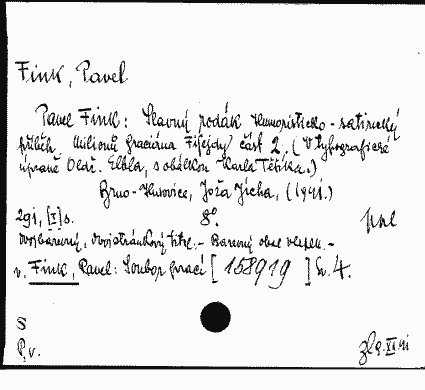 Fink, Pavel
Pavel Fink: Slavný rodák Humoristicko-satirický
příběh Milionů Graciána Fifejdy část 2. (V typografické
úpravě Oldř. Elbla, s obálkou Karla Těšíka.)
Brno-Husovice, Joža Jícha, (1941.)
291, [I] s. 8°.
dvojbarevný, dvojstránkový titul.- Barevný obal
v. Fink, Pavel: Soubor prací [158919] Sv. 4.
S
P.v.